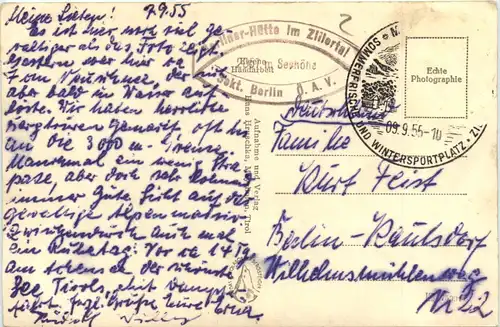 Meine Lieben! 7.9.55
Es ist hier noch viel ge-
waltiger als das Foto zeigt.
Gestern aber hier ca
7 cm Neuschnee, der
aber bald in Wasser auf
löste. Wir haben herrliche
Bergtouren gemacht, oft bis
an die 3000 m - Grenze.
Manchmal ein wenig Stra-
paze, aber doch
immer gute Sicht auf die
gewaltige Alpenmassive
Zwischendurch auch mal
ein Ruhetag. Vor ca 14 Tg
am Achensee der
See Tirols, mit Dampf
fahrt Grüße
Rudolf
liner-Hütte im Zillertal
Seehöhe
Sekt. Berlin D. A. V.
Aufnahme und Verlag
Hans Hruschka, Tirol
Echte
Photographie
SOMMERFRISCHE UND WINTERSPORTPLATZ
09.9.55-10
Deutschland
Familie
Kurt Feist
Berlin-Kaulsdorf
Wilhelmsmühlenweg
Nr 22
2